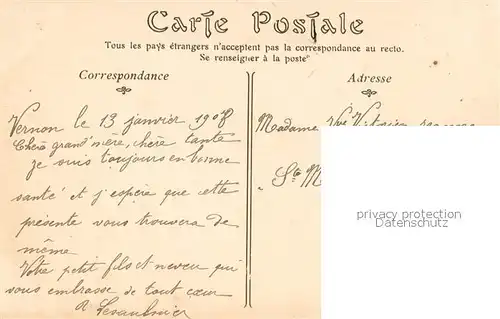 Carte Postale
Tous les pays étrangers n'acceptent pas la correspondance au recto.
Se renseigner à la poste
Correspondance
Adresse
Vernon le 13 janvier 1908
Chère grand'mère, chère tante
Je suis toujours en bonne
santé et j'espère que cette
présente vous trouvera de
même
Votre petit fils et neveu qui
vous embrasse de tout cœur
Madame Vve
Ste M
privacy protection
Datenschutz